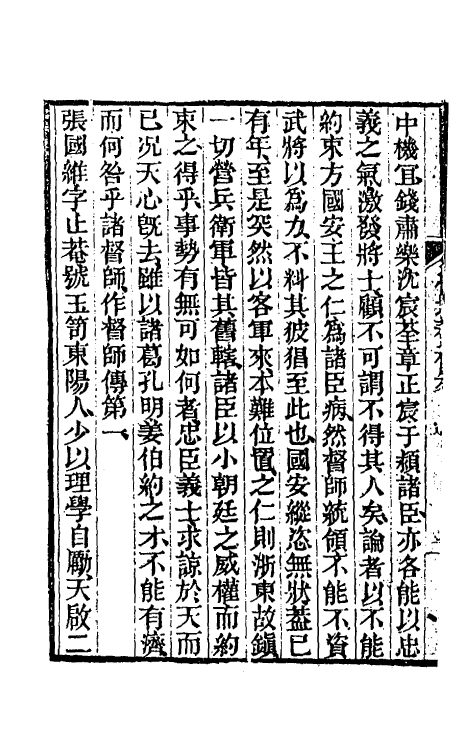 中機宜、錢肅樂沈宸荃章正宸于潁諸臣、亦各能以忠
義之氣激發將士、顧不可謂不得其人矣、論者以不能
約束方國安王之仁爲諸臣病、然督師統領不能不資
武將以爲力、不料其披猖至此也、國安縱恣無狀蓋已
有年、至是突然以客軍來、本難位置、之仁則浙東故鎭
一切營兵衛軍皆其舊轄、諸臣以小朝廷之威權而約
束之得乎、事勢有無可如何者、忠臣義士、求諒於天而
已、況天心旣去、雖以諸葛孔明姜伯約之才、不能有濟
而何咎乎諸督師、作督師傳第一、
張國維字止菴、號玉笥、東陽人、少以理學自勵、天啟二